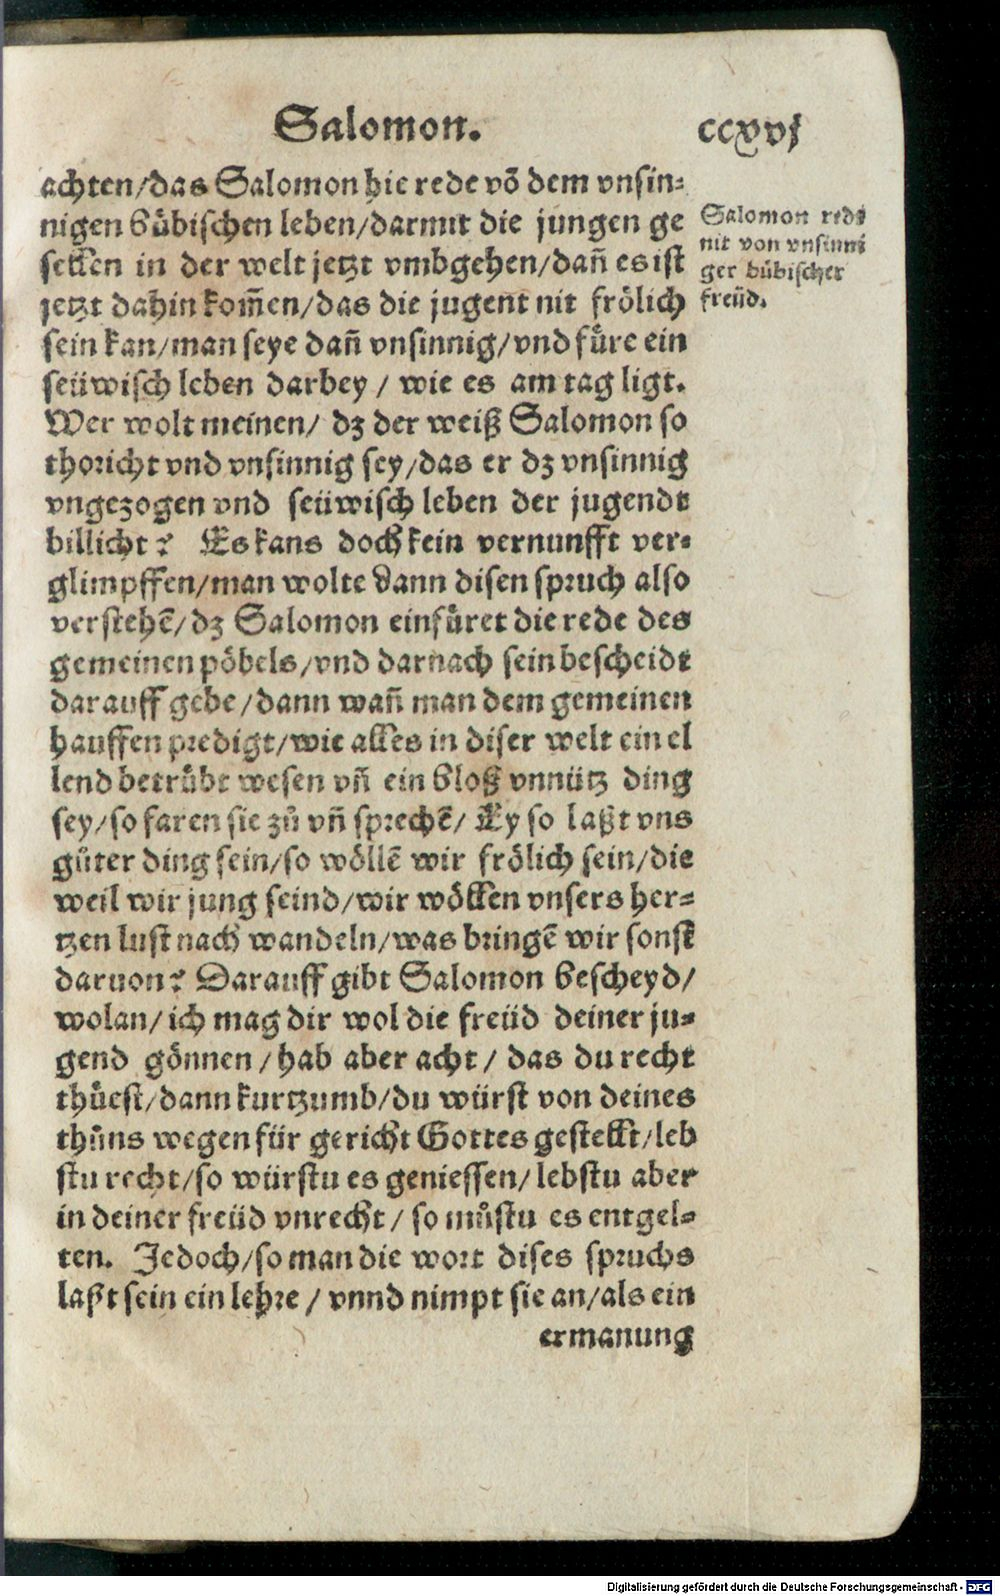 Salomon. ccxvj
achten/das Salomon hie rede võ dem vnsin⸗
nigen bůbischen leben/darmit die jungen ge
sellen in der welt jetzt vmbgehen/dañ es ist
jetzt dahin kom̃en/das die jugent nit frölich
sein kan/man seye dañ vnsinnig/vnd fůre ein
seüwisch leben darbey / wie es am tag ligt.
Wer wolt meinen/ dz der weiß Salomon so
thoricht vnd vnsinnig sey/das er dz vnsinnig
vngezogen vnd seüwisch leben der jugendt
billicht? Es kans doch kein vernunfft ver⸗
glimpffen/man wolte dann disen spruch also
verstehẽ/dz Salomon einfůret die rede des
gemeinen pöbels/vnd darnach sein bescheidt
darauff gebe/dann wañ man dem gemeinen
hauffen predigt/wie alles in diser welt ein el
lend betrůbt wesen vñ ein bloß vnnütz ding
sey/so faren sie zů vñ sprechẽ/ Ey so laßt vns
gůter ding sein/so wöllẽ wir frölich sein/die
weil wir jung seind/wir wöllen vnsers her⸗
tzen lust nach wandeln/was bringẽ wir sonst
daruon? Darauff gibt Salomon bescheyd/
wolan/ ich mag dir wol die freüd deiner ju⸗
gend gönnen / hab aber acht / das du recht
thůest/dann kurtzumb/du würst von deines
thůns wegen für gericht Gottes gestellt/leb
stu recht/so würstu es geniessen/ lebstu aber
in deiner freüd vnrecht / so můstu es entgel⸗
ten. Jedoch/so man die wort dises spruchs
laßt sein ein lehre / vnnd nimpt sie an/als ein
ermanung
Salomon redt
nit von vnsinni
ger bůbischer
freüd.
Digitalisierung gefördert durch die Deutsche Forschungsgemeinschaft - DFG